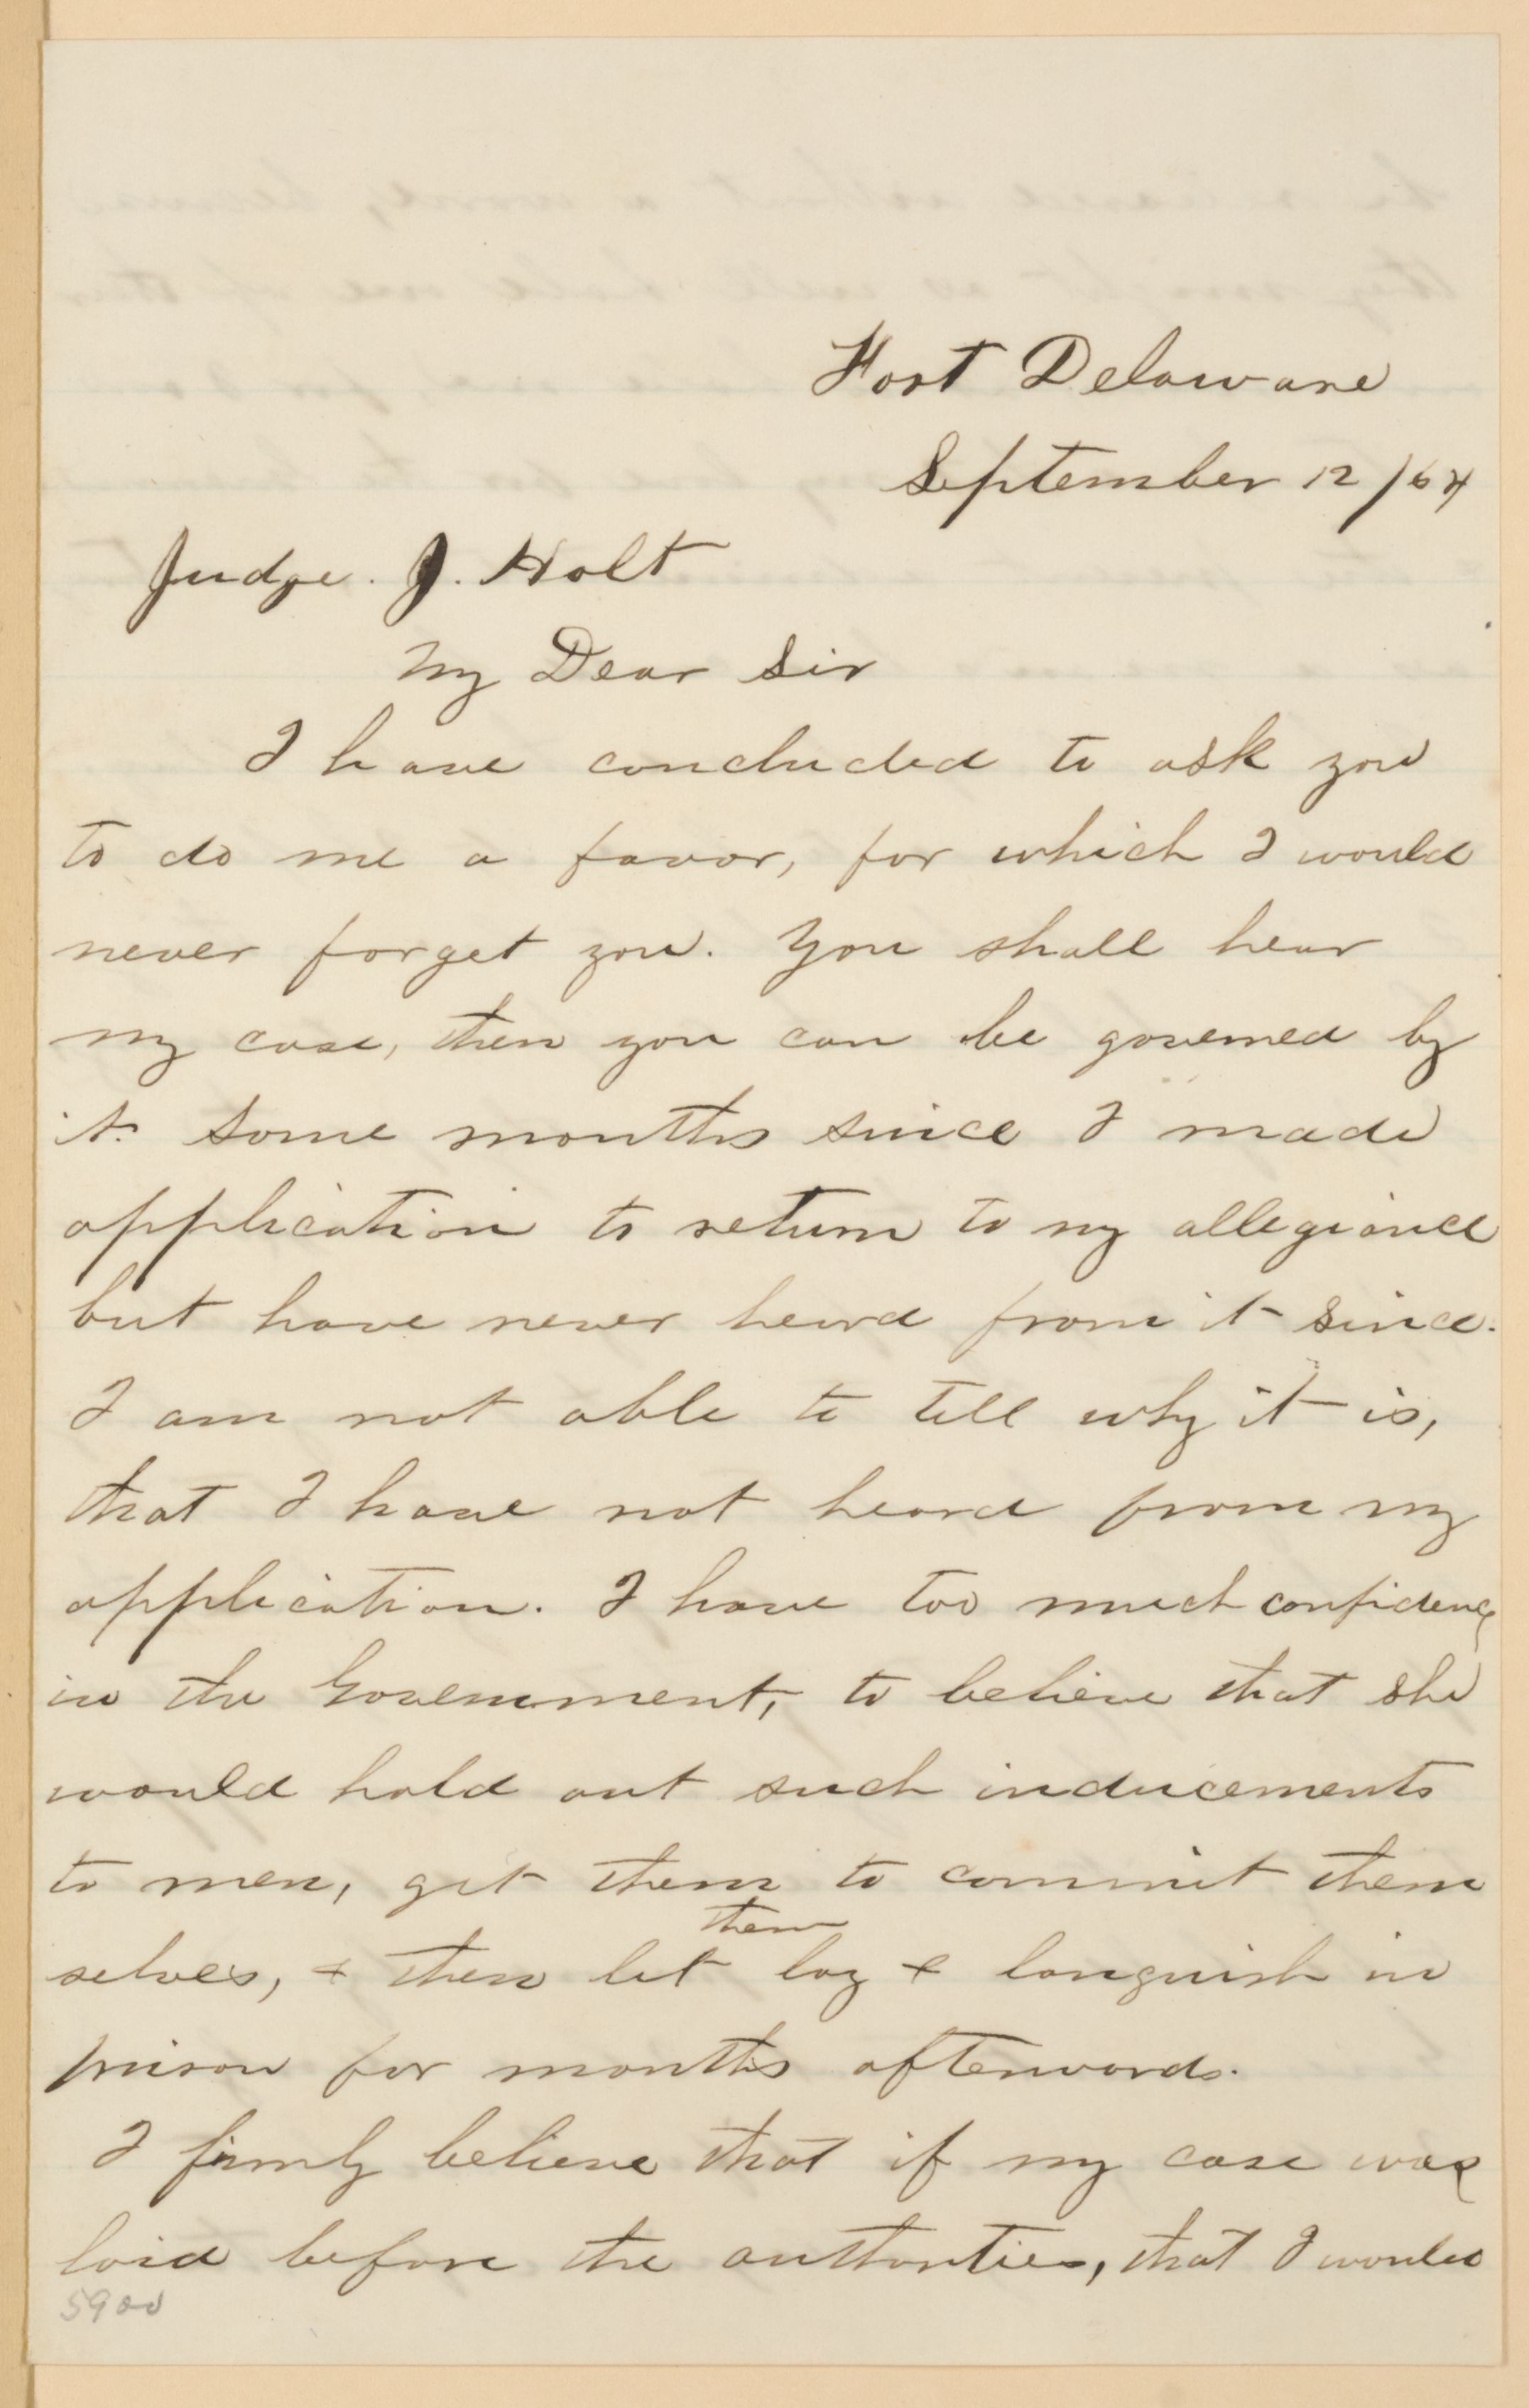 Fort Delaware
September 12/64
Judge. J. Holt
My Dear Sir
I have concluded to ask you
to do me a favor, for which I would
never forget you. You shall hear
my case, then you can be governed by
it. Some months since I made
application to return to my allegiance
but have never heard from it since.
I am not able to tell why it is,
that I have not heard from my
application. I have too much confidence
in the Government, to believe that she
would hold out such inducements
to men, get them to commit them
them
selves, & then let lay & languish in
prison for months afterwards.
I firmly believe that if my case was
laid before the authorities, that I would
5900